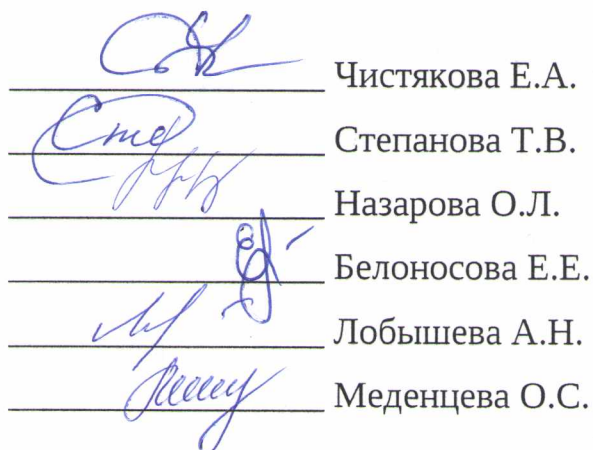 Чистякова Е.А.
Степанова Т.В.
Назарова О.Л.
Белоносова Е.Е.
Лобышева А.Н.
Меденцева О.С.